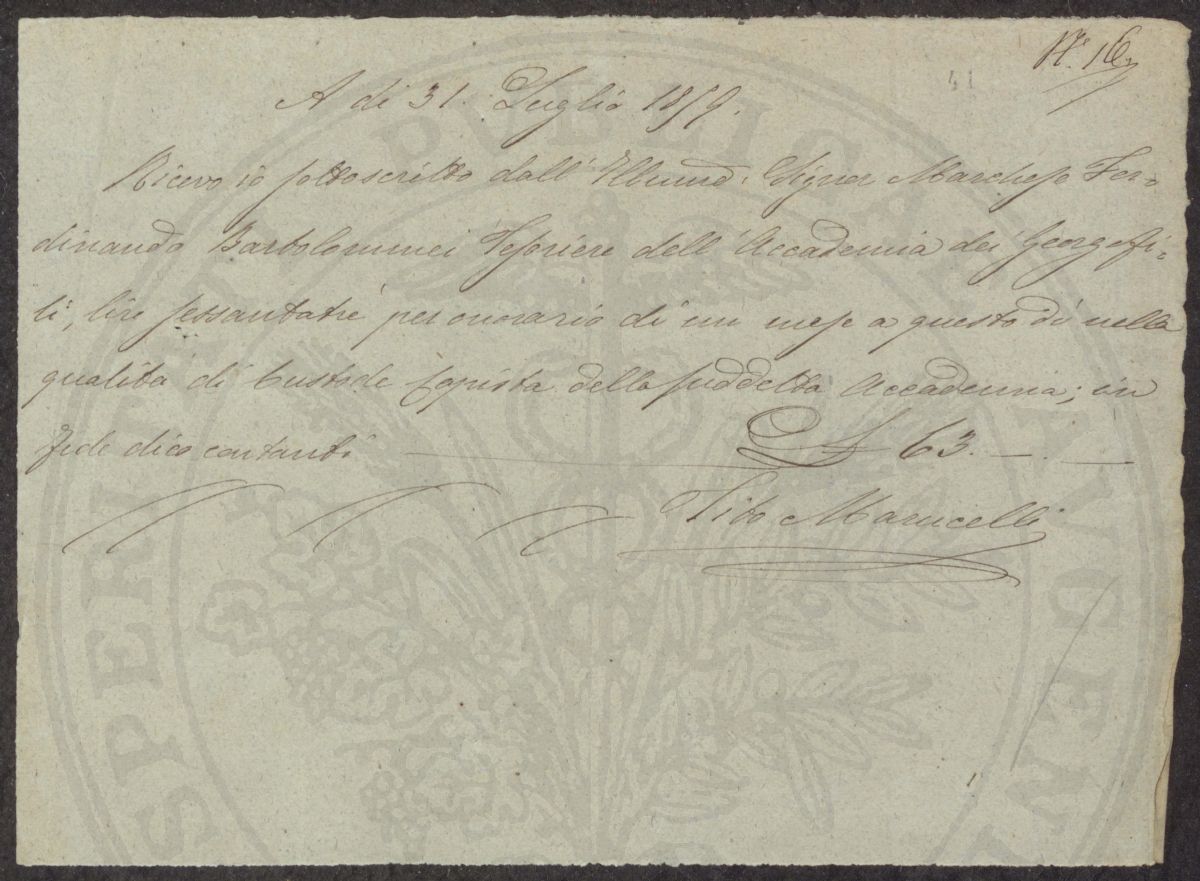 N.° 16
41
A di 31. Luglio 1859.
Ricevo io sottoscritto dall' Illumo. Signor Marchese Fer=
dinando Bartolommei Tesoriere dell' Accademia dei Georgofi=
li, lire sessantatrè per onorario di un mese a questo dì nella
qualità di Custode Copista della suddetta Accademia; in
fede dico contanti £ 63. —. —
Tito Marucelli
PROSPERITATI PUBLICAE AUGENDAE